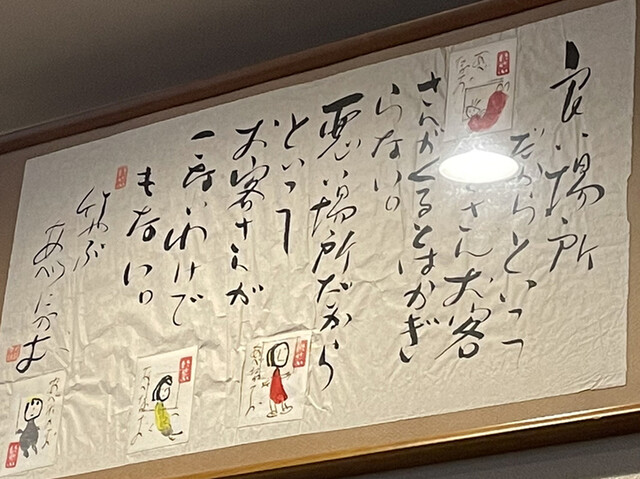 良い場所
だからといって
さんお客
さんがくるとはかぎ
らない。
悪い場所だから
といって
お客さんが
こないわけで
もない。
竹やぶ